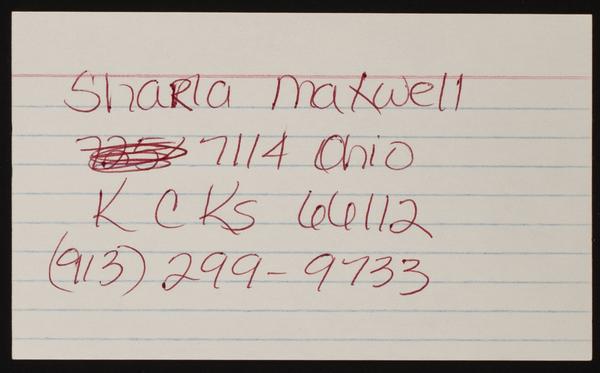 Sharla Maxwell
7114 Ohio
K C Ks 66112
(913) 299-9733